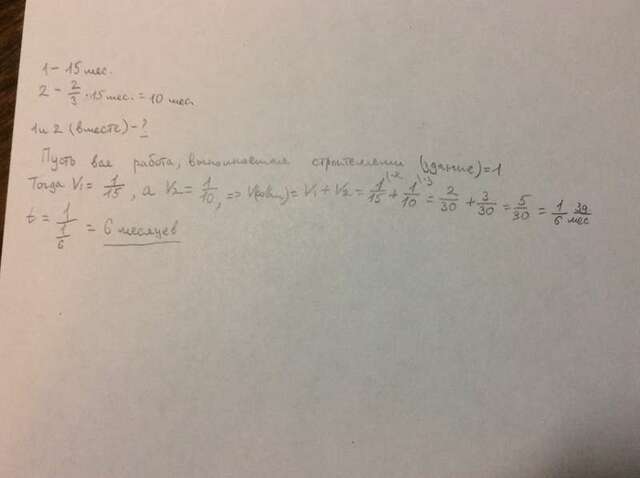 1 - 15 мес.
2 - 2/3 · 15 мес. = 10 мес.
1 и 2 (вместе) - ?
Пусть вся работа, выполняемая строителями (здание) = 1
Тогда V₁ = 1/15, а V₂ = 1/10, => V(общ) = V₁ + V₂ = 1/15 + 1/10 = 2/30 + 3/30 = 5/30 = 1/6 зд/мес
t = 1/(1/6) = 6 месяцев